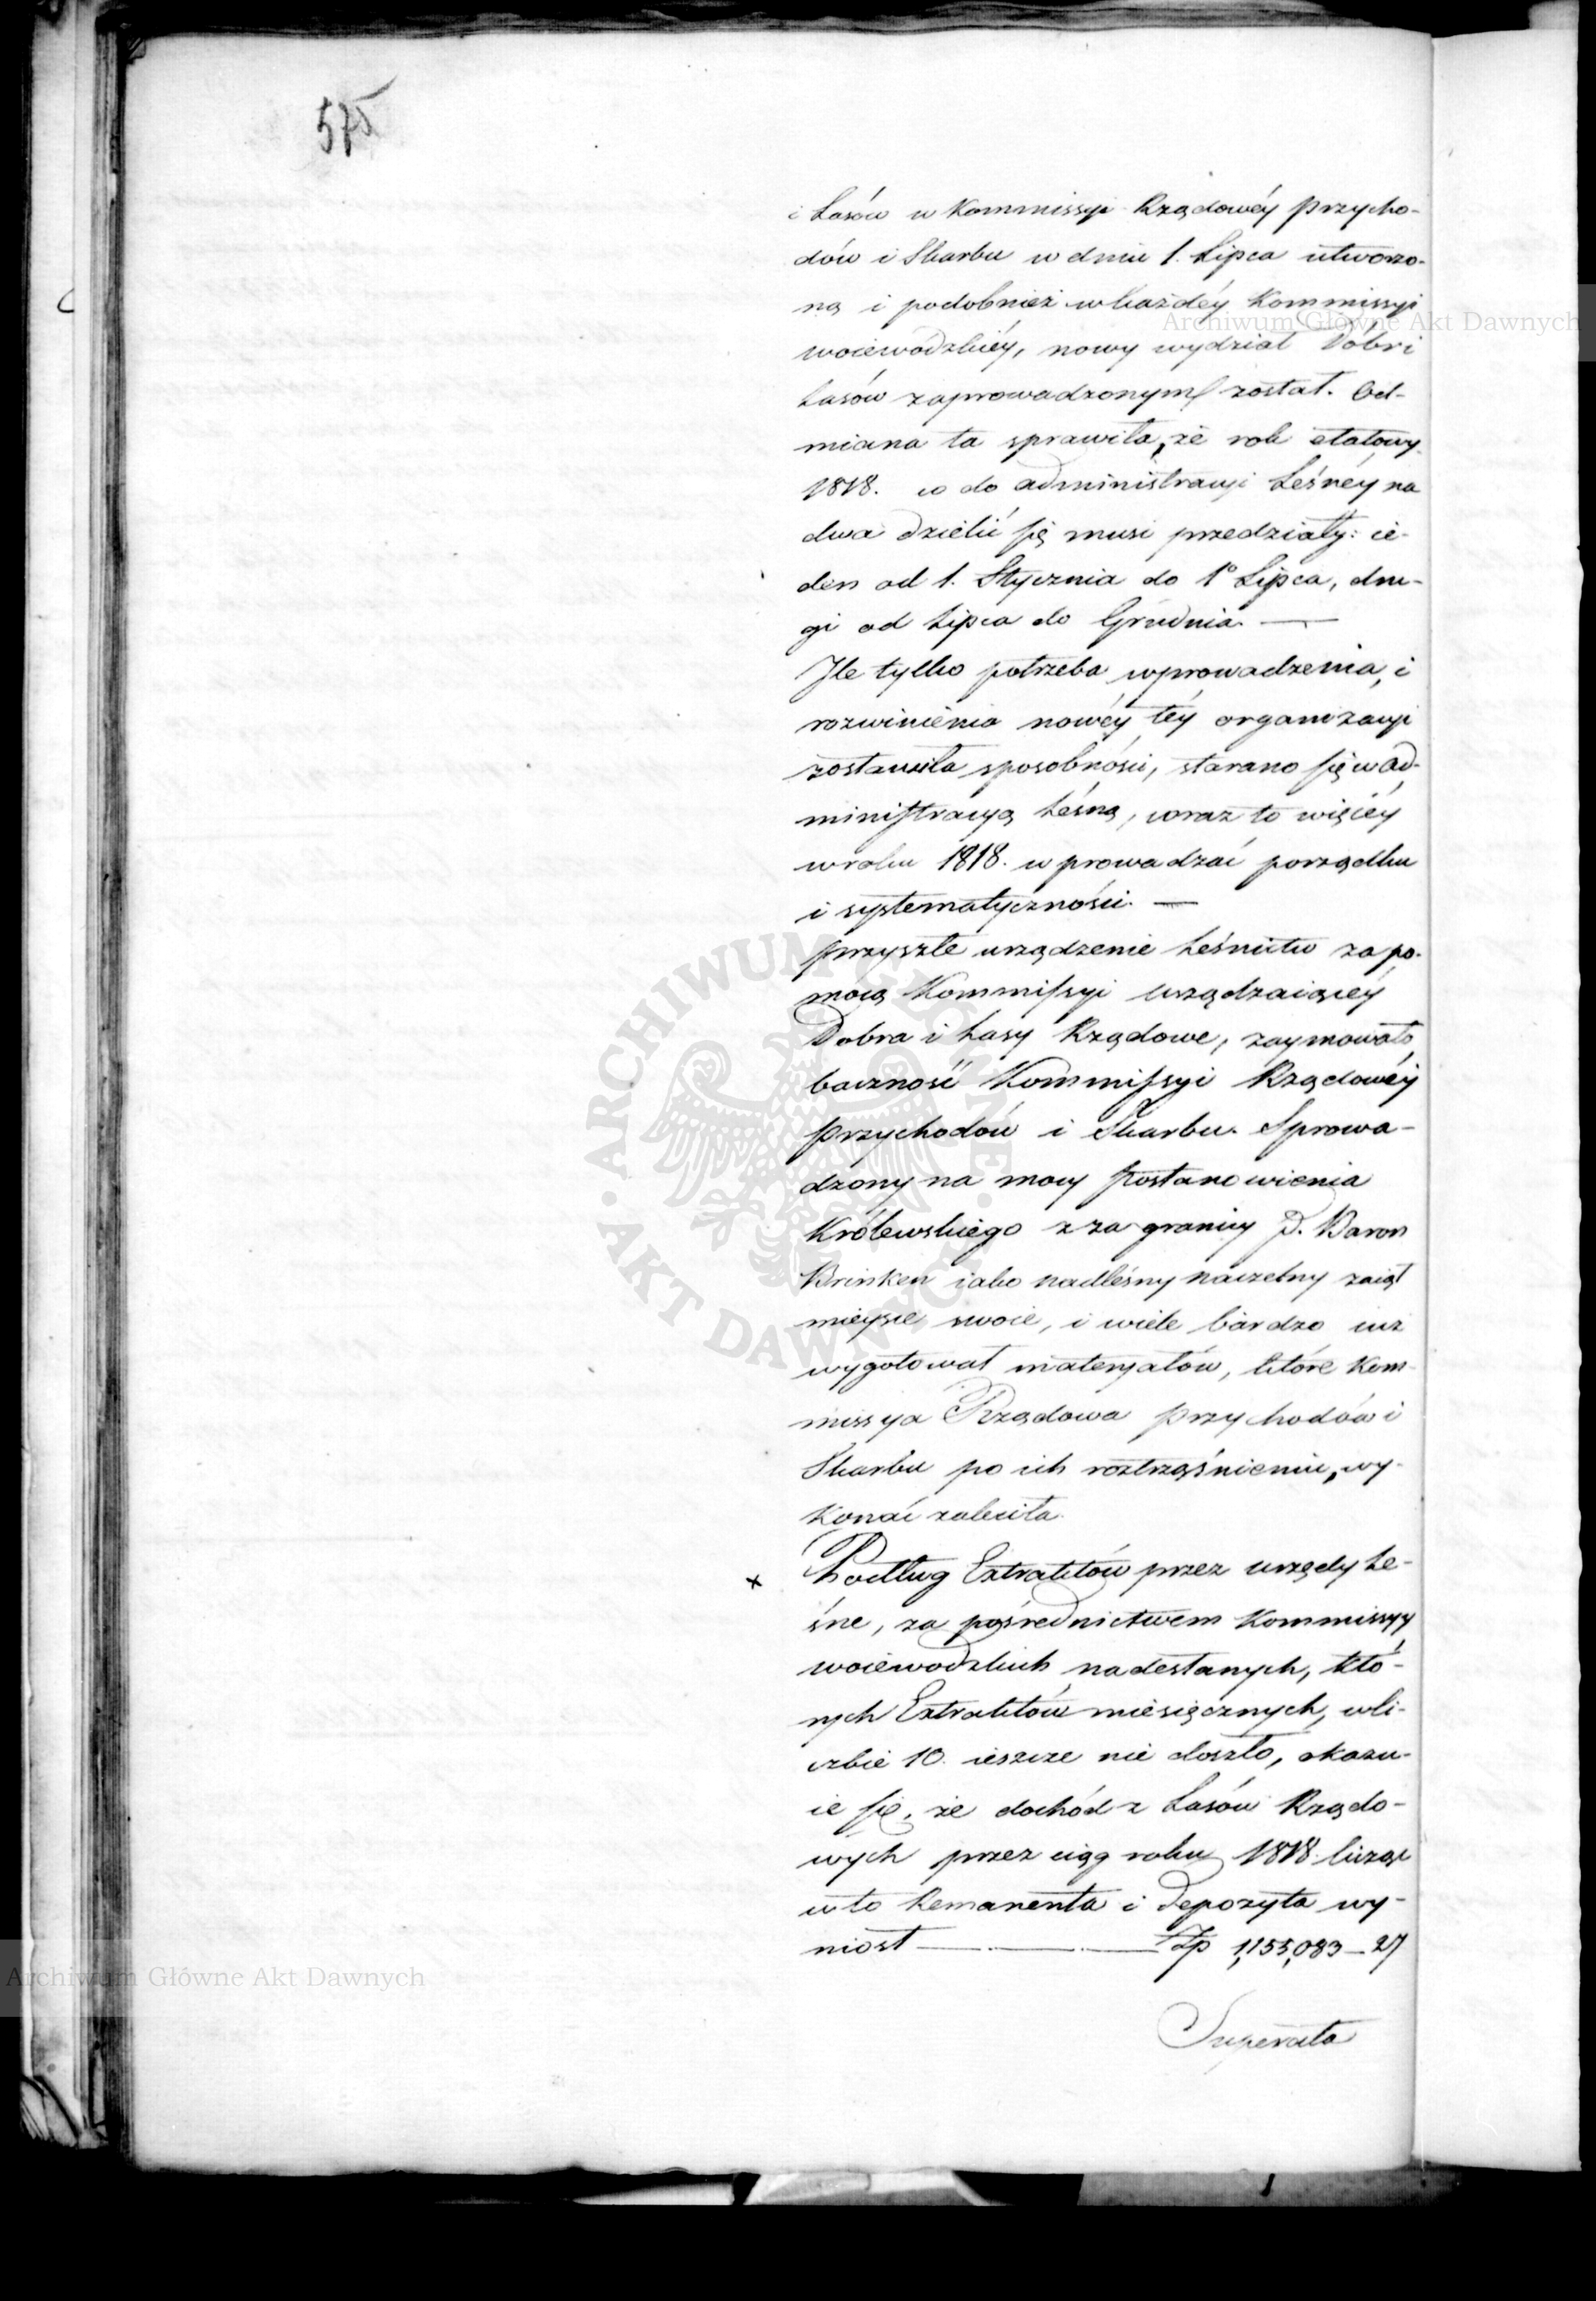 575
i Lasów w Kommissyi Rządowéy Przycho-
dów i Skarbu w dniu 1. Lipca utworzo-
ną i podobnież w każdéy Kommissyi
woiewódzkiéy, nowy wydział Dóbr i
Lasów zaprowadzonym został. Od-
miana ta sprawiła, że rok etatowy
1818. co do administracyi Leśnéy na
dwa dzielić się musi przedziały: ie-
den od 1. Stycznia do 1º Lipca, dru-
gi od Lipca do Grudnia. —
Ile tylko potrzeba wprowadzenia, i
rozwinienia nowéy téy organizacyi
zostawiła sposobności, starano się w ad-
ministracyą Leśną, coraz to więcéy
w roku 1818. wprowadzać porządku
i systematyczności. —
Przyszłe urządzenie Leśnictw za po-
mocą Kommissyi urządzaiącéy
Dobra i Lasy Rządowe, zaymowało
baczność Kommissyi Rządowéy
Przychodów i Skarbu. Sprowa-
dzony na mocy Postanowienia
Królewskiego z za granicy P. Baron
Brinken iako nadleśny naczelny zaiął
mieysce swoie, i wiele bardzo iuż
wygotował materyałów, które Kom-
missya Rządowa Przychodów i
Skarbu po ich roztrząśnieniu, wy-
konać zaleciła.
x Podług Extraktów przez urzędy Le-
śne, za pośrednictwem Kommissyy
woiewodzkich nadesłanych, któ-
rych Extraktów miesięcznych, w li-
czbie 10. ieszcze nie doszło, okazu-
ie się, że dochód z Lasów Rządo-
wych przez ciąg roku 1818 licząc
w to Remanenta i Depozyta wy-
niosł — Zp 1,153,083 — 27
Superata
Archiwum Główne Akt Dawnych
ARCHIWUM GŁÓWNE · AKT DAWNYCH ·
Archiwum Główne Akt Dawnych